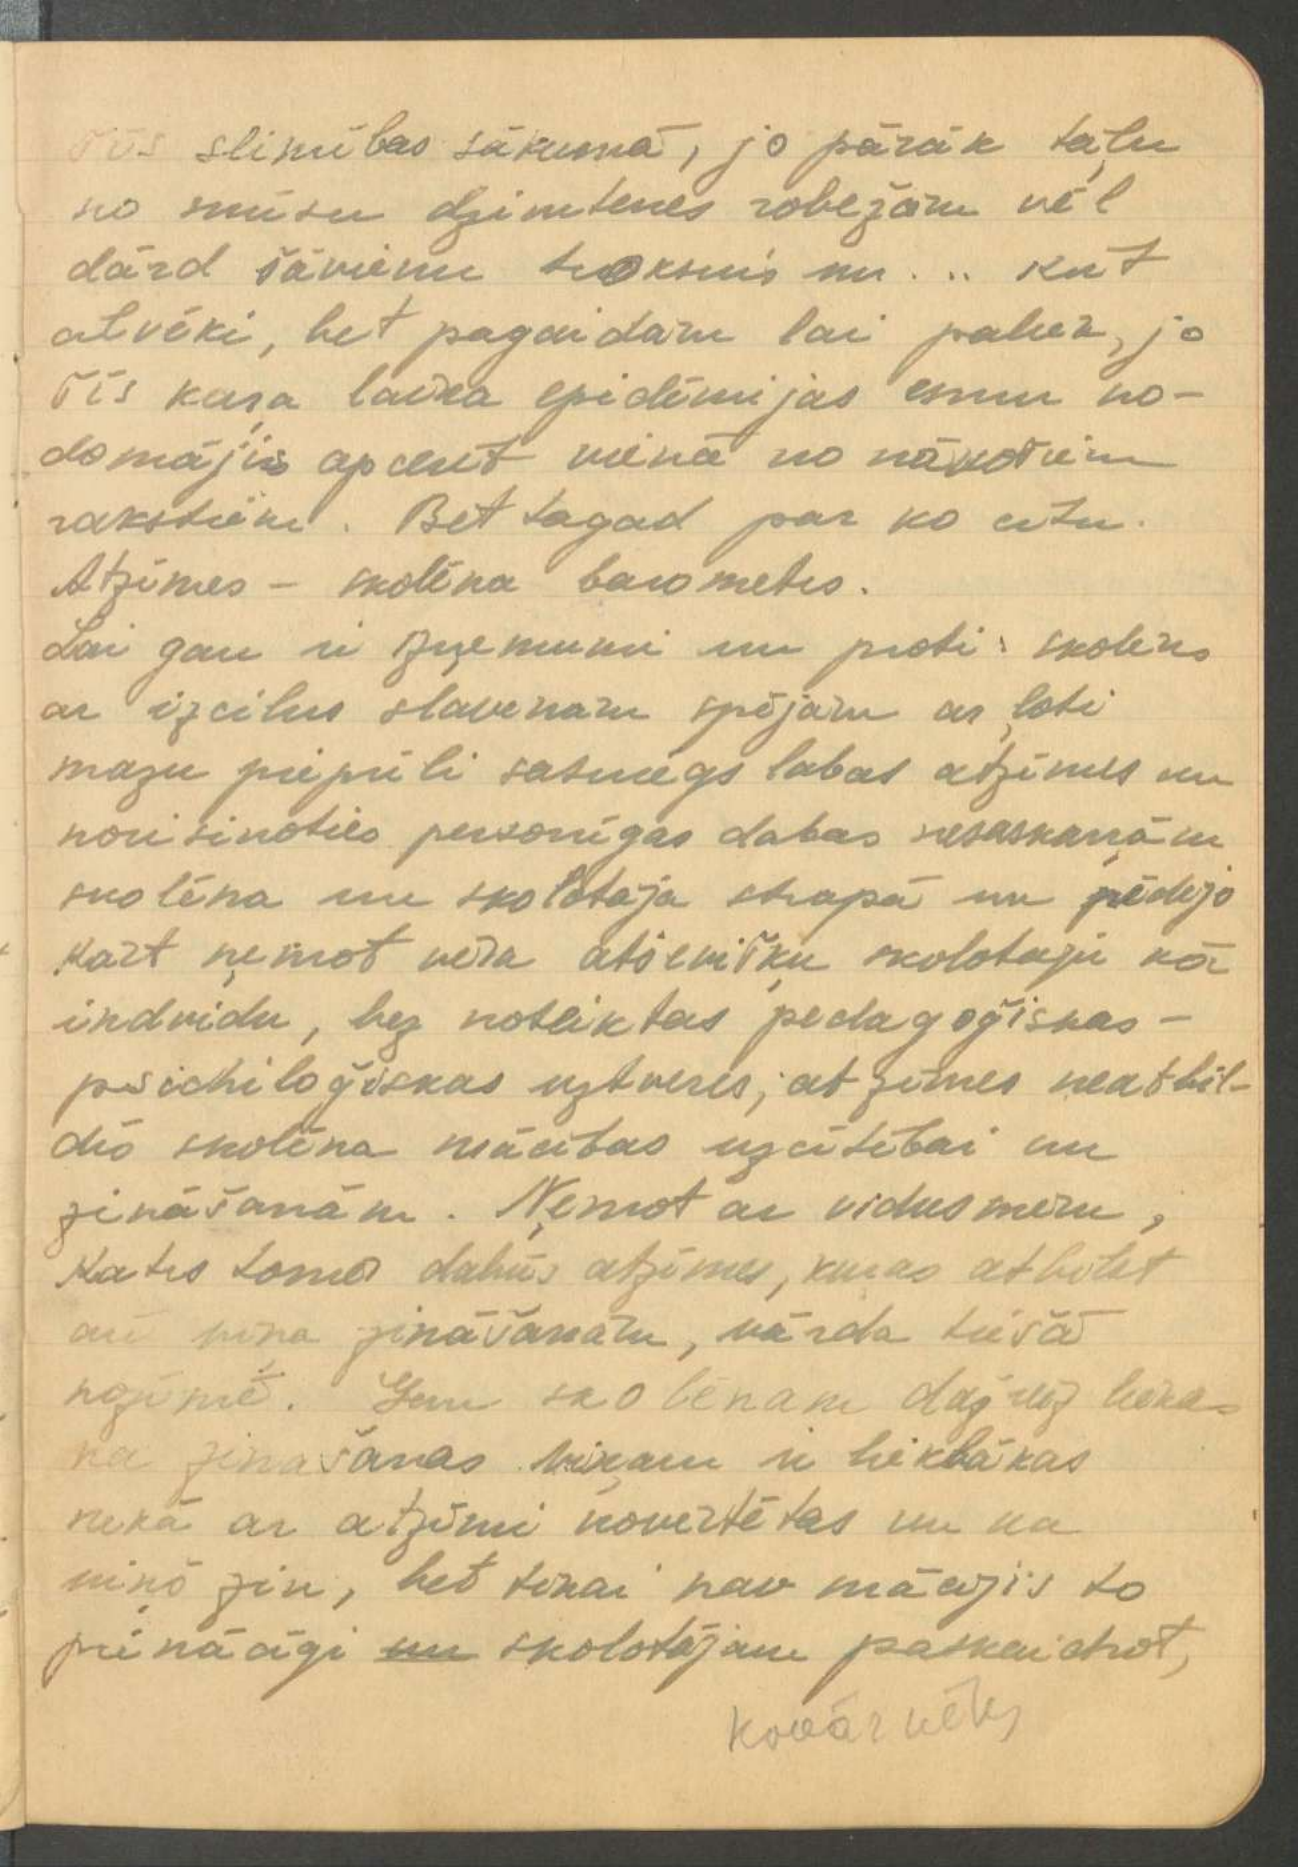 šīs slimības sākumā, jo pārāk taļu
no mūsu dzimtenes robežām vēl
dārd šāvienu troksnis un... kut
atvēki, bet pagaidām lai paliek, jo
šīs kaŗa laika epidēmijas esmu no-
domājis apcerēt vienā no nākošiem
rakstiem. Bet tagad par ko citu.
Atzīmes - skolēna barometrs.
Lai gan ir izņēmumi un proti: skolēns
ar izcilus slavenām spējām ar ļoti
mazu piepūli sasniegs labas atzīmes un
norisinoties personīgas dabas nesaskaņām
skolēna un skolotāja starpā un pēdējo
kārt ņemot vērā atsevišķu skolotāju kā
indvidu, bez noteiktas pedagoģiskas-
psichiloģiskas uztveres, atzīmes neatbil-
dīs skolēna mācības uzcītībai un
zināšanām. Ņemot ar vidusmēru,
katrs tomēr dabūs atzīmes, kuŗas atbilst
arī viņa zināšanām, vārda tiešā
nozīmē. Gan skolēnam dažreiz liekas
ka zināšanas viņam ir lieklākas
nekā ar atzīmi novērtētas un ka
viņš zin, bet tikai nav mācējis to
pienācīgi un skolotājam paskaidrot,